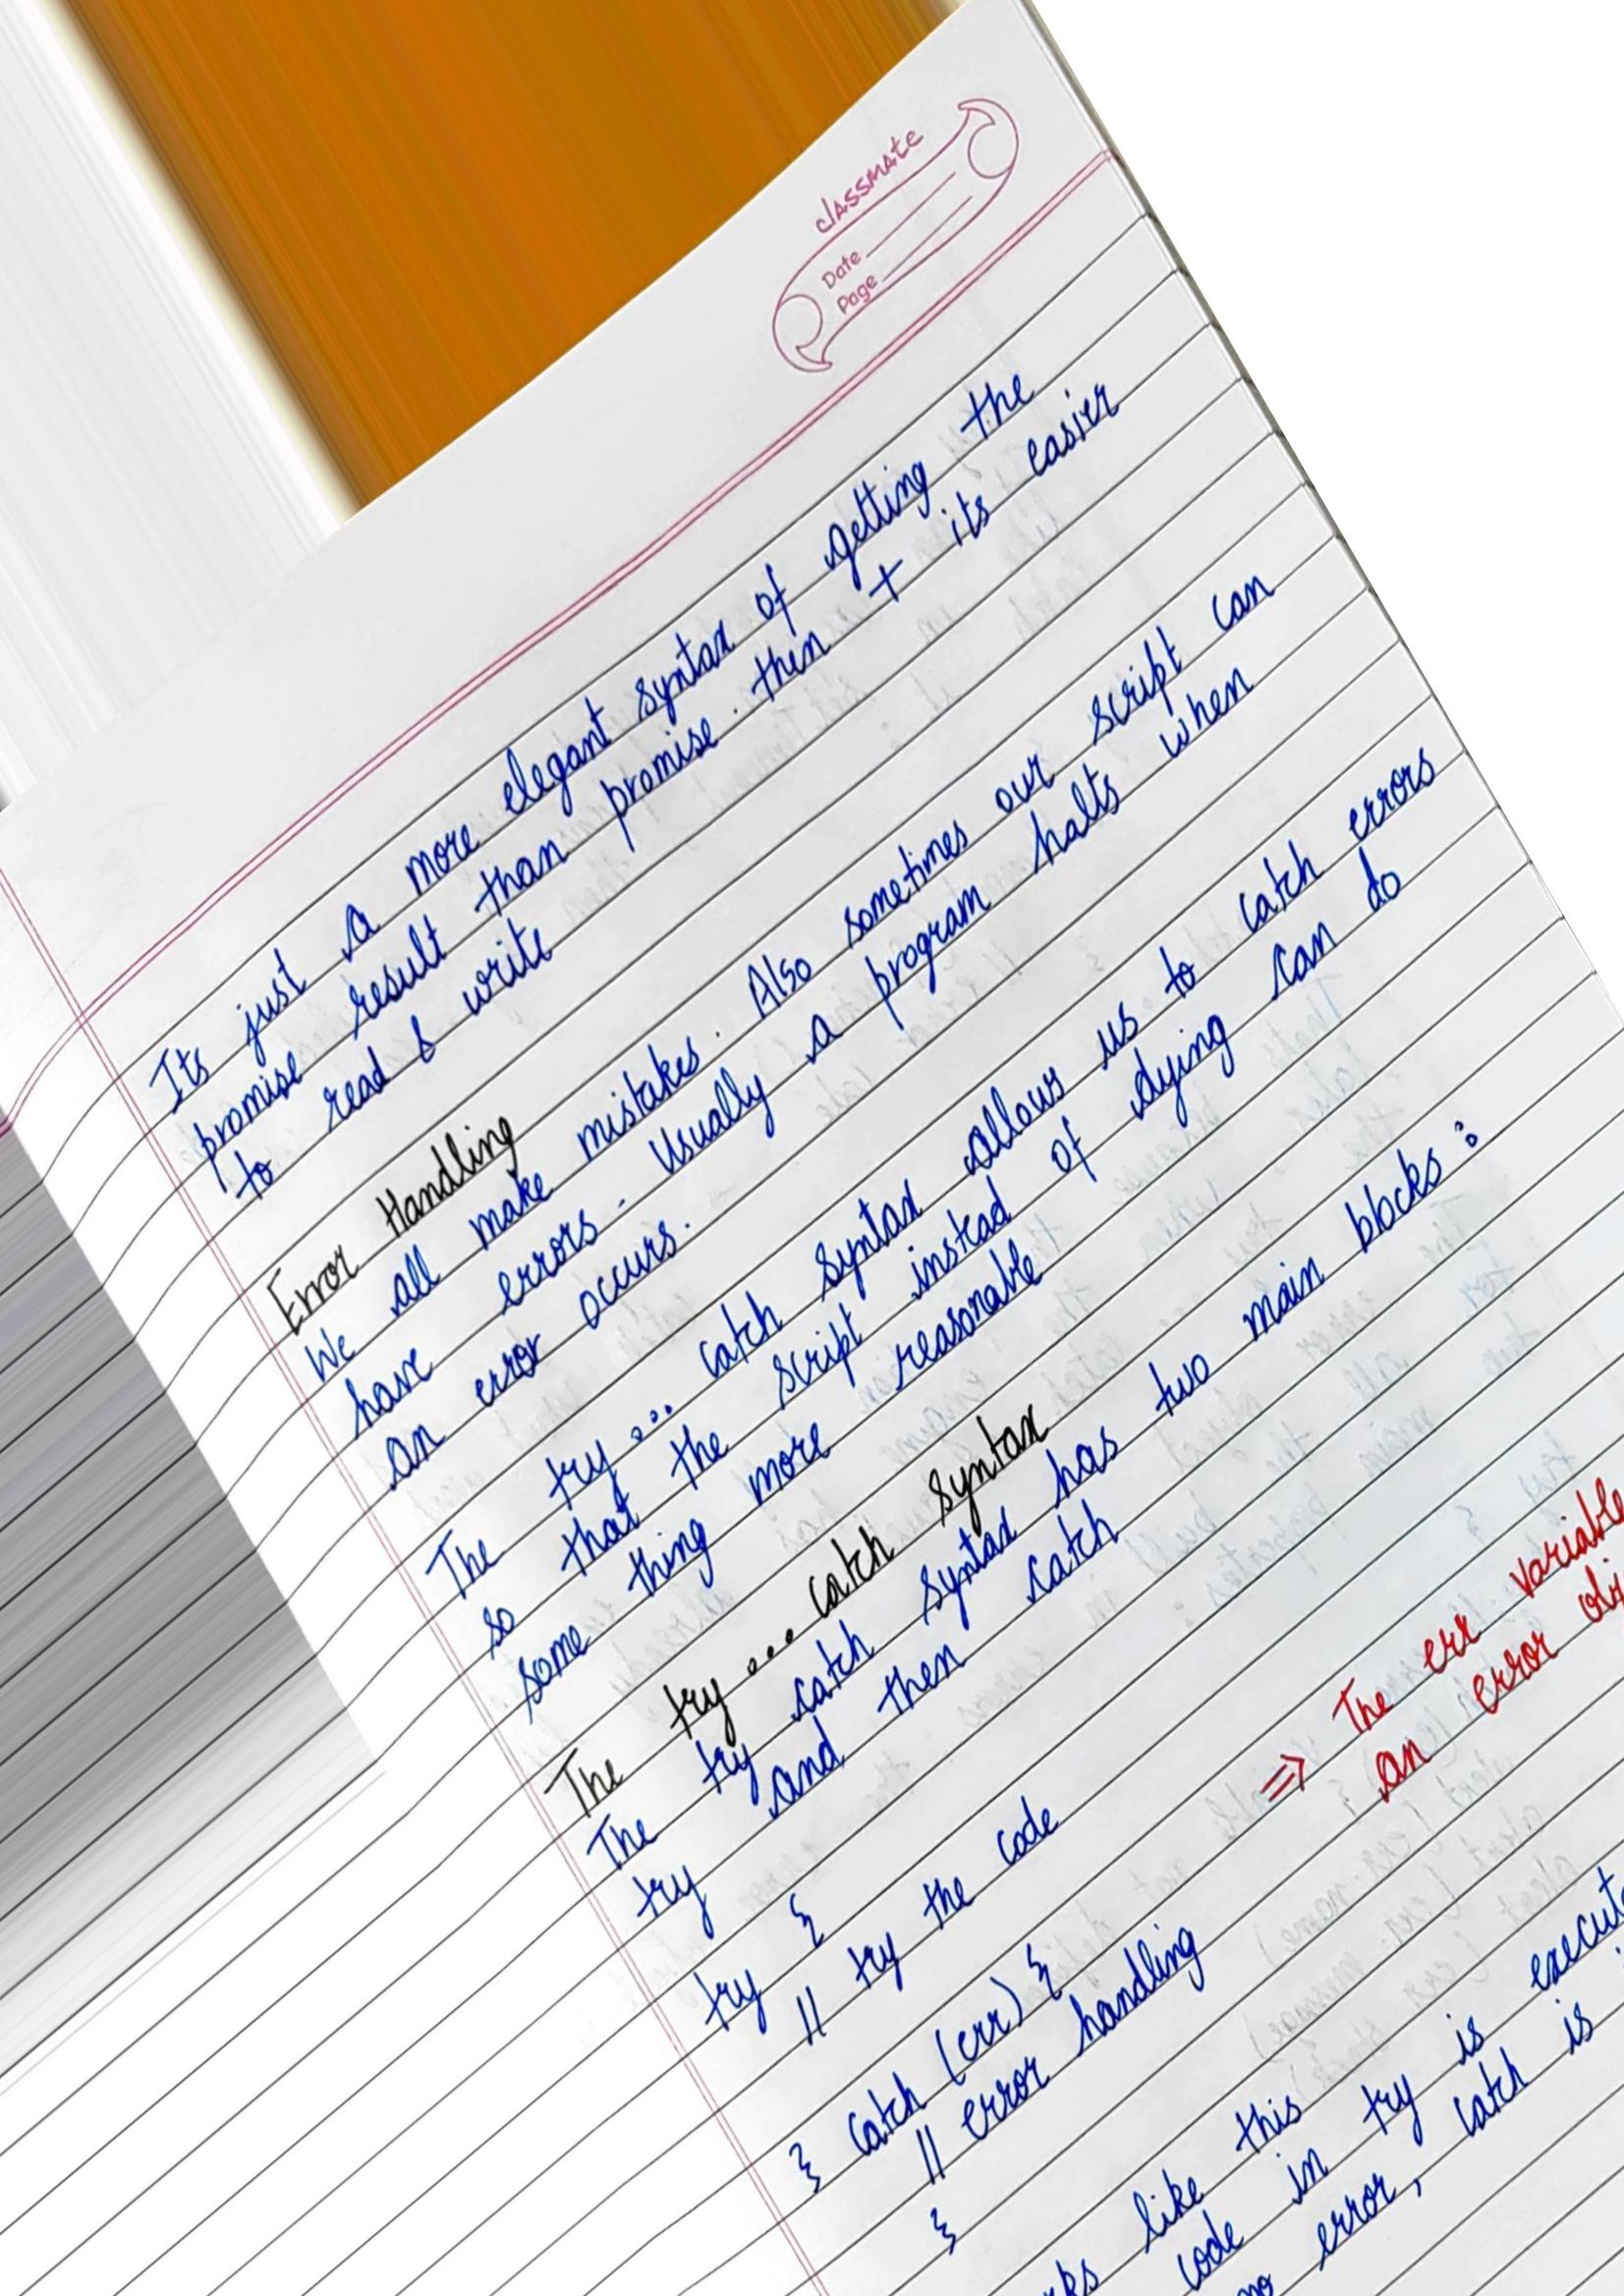 classmate
Date
Page
Its just a more elegant syntax of getting the
promise result than promise . then + its easier
to read & write
Error Handling
We all make mistakes. Also sometimes our script can
have errors. Usually a program halts when
an error occurs.
The try... catch syntax allows us to catch errors
so that the script instead of dying can do
some thing more reasonable
The try... catch syntax
The try catch syntax has two main blocks :
try and then catch
try {
// try the code
} catch (err) {
⇒ The err variable
an error
// error handling
}
like this
code in try is
error, catch is